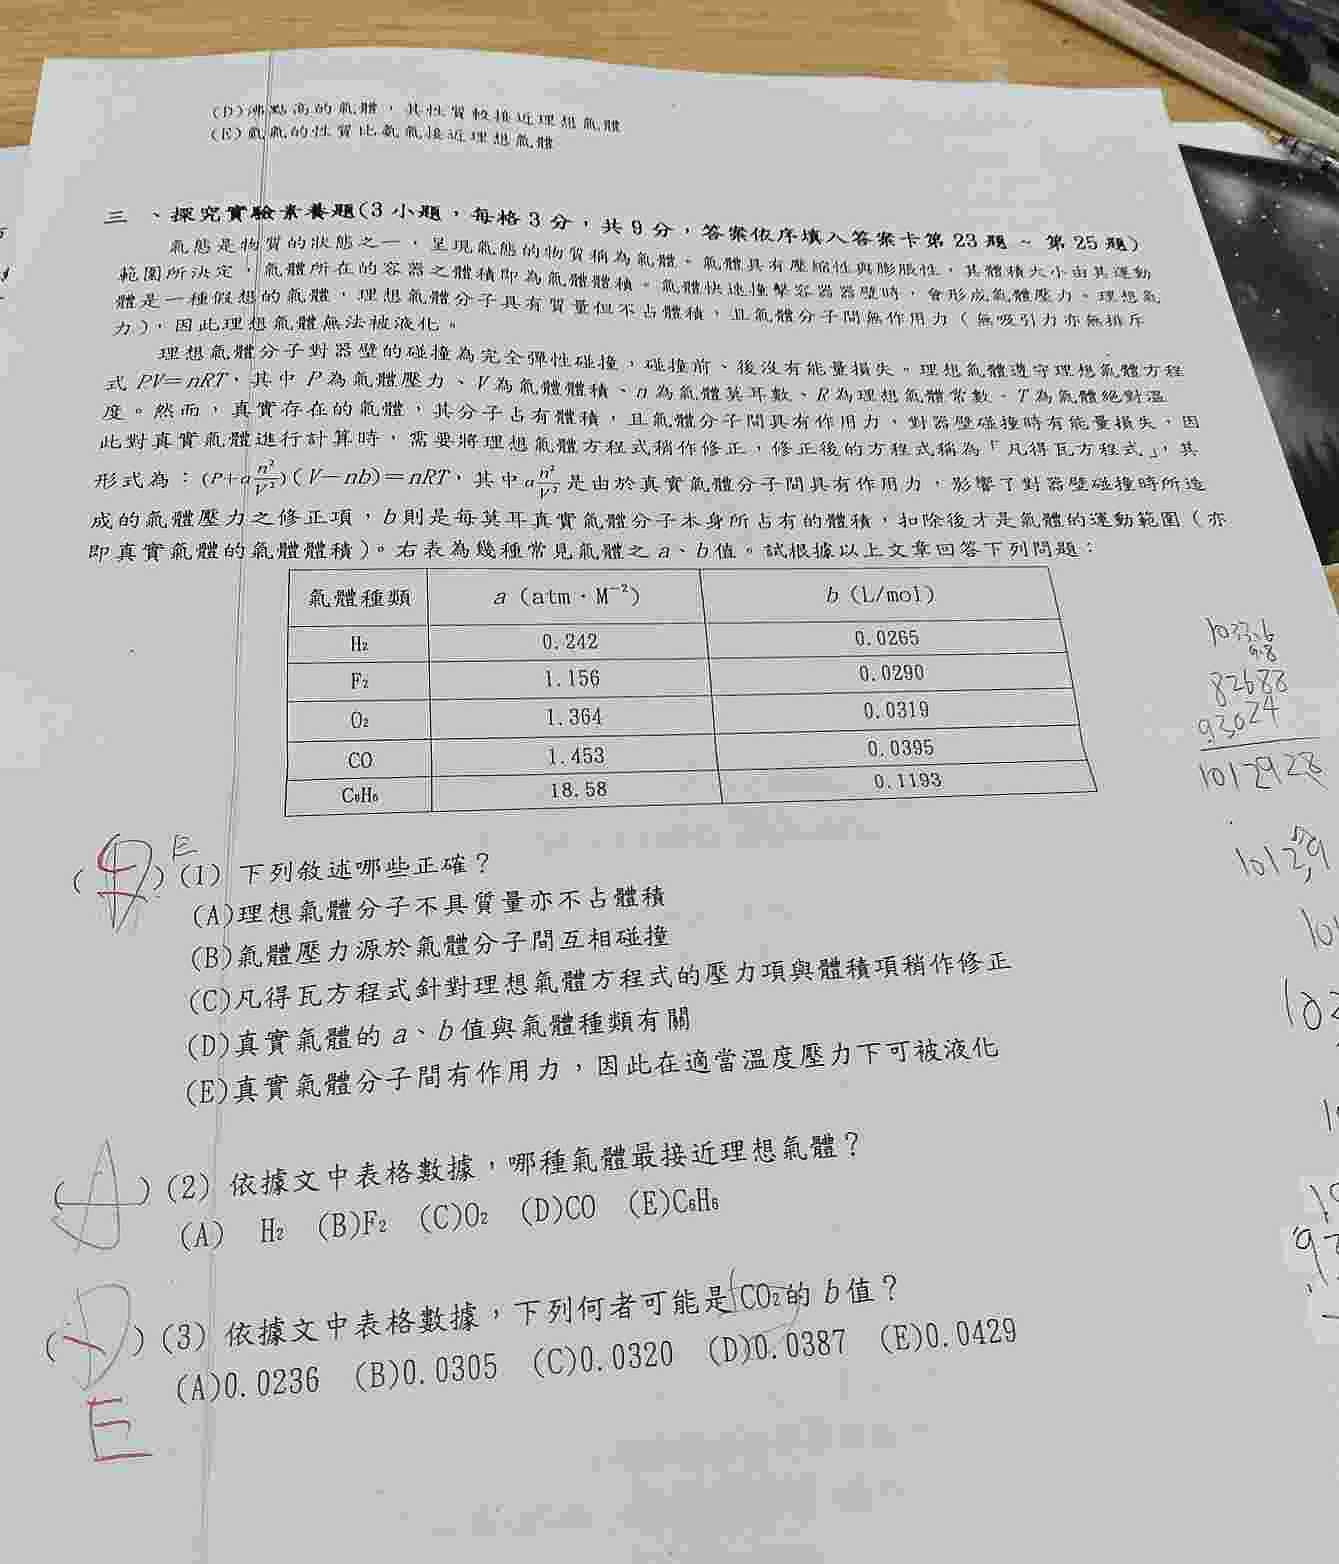 (D)沸點高的氣體，其性質較接近理想氣體
(E)氦氣的性質比氨氣接近理想氣體
三、探究實驗素養題(3小題，每格3分，共9分，答案依序填入答案卡第23題~第25題)
氣態是物質的狀態之一，呈現氣態的物質稱為氣體。氣體具有壓縮性與膨脹性，其體積大小由其運動
範圍所決定，氣體所在的容器之體積即為氣體體積。氣體快速撞擊容器器壁時，會形成氣體壓力。理想氣
體是一種假想的氣體，理想氣體分子具有質量但不占體積，且氣體分子間無作用力（無吸引力亦無排斥
力），因此理想氣體無法被液化。
理想氣體分子對器壁的碰撞為完全彈性碰撞，碰撞前、後沒有能量損失。理想氣體遵守理想氣體方程
式 PV=nRT，其中 P為氣體壓力、V為氣體體積、n為氣體莫耳數、R為理想氣體常數、T為氣體絕對溫
度。然而，真實存在的氣體，其分子占有體積，且氣體分子間具有作用力，對器壁碰撞時有能量損失，因
此對真實氣體進行計算時，需要將理想氣體方程式稍作修正，修正後的方程式稱為「凡得瓦方程式」，其
形式為：(P+a n²/V²)(V−nb)=nRT，其中a n²/V² 是由於真實氣體分子間具有作用力，影響了對器壁碰撞時所造
成的氣體壓力之修正項，b則是每莫耳真實氣體分子本身所占有的體積，扣除後才是氣體的運動範圍（亦
即真實氣體的氣體體積）。右表為幾種常見氣體之 a、b值。試根據以上文章回答下列問題：
氣體種類 a (atm·M⁻²) b (L/mol)
H₂ 0.242 0.0265
F₂ 1.156 0.0290
O₂ 1.364 0.0319
CO 1.453 0.0395
C₆H₆ 18.58 0.1193
1033.6
9.8
82688
93024
1012928
E
( ) (1) 下列敘述哪些正確？
(A)理想氣體分子不具質量亦不占體積
(B)氣體壓力源於氣體分子間互相碰撞
(C)凡得瓦方程式針對理想氣體方程式的壓力項與體積項稍作修正
(D)真實氣體的 a、b值與氣體種類有關
(E)真實氣體分子間有作用力，因此在適當溫度壓力下可被液化
(A) (2) 依據文中表格數據，哪種氣體最接近理想氣體？
(A) H₂ (B)F₂ (C)O₂ (D)CO (E)C₆H₆
(D) (3) 依據文中表格數據，下列何者可能是CO₂的 b值？
(A)0.0236 (B)0.0305 (C)0.0320 (D)0.0387 (E)0.0429
E